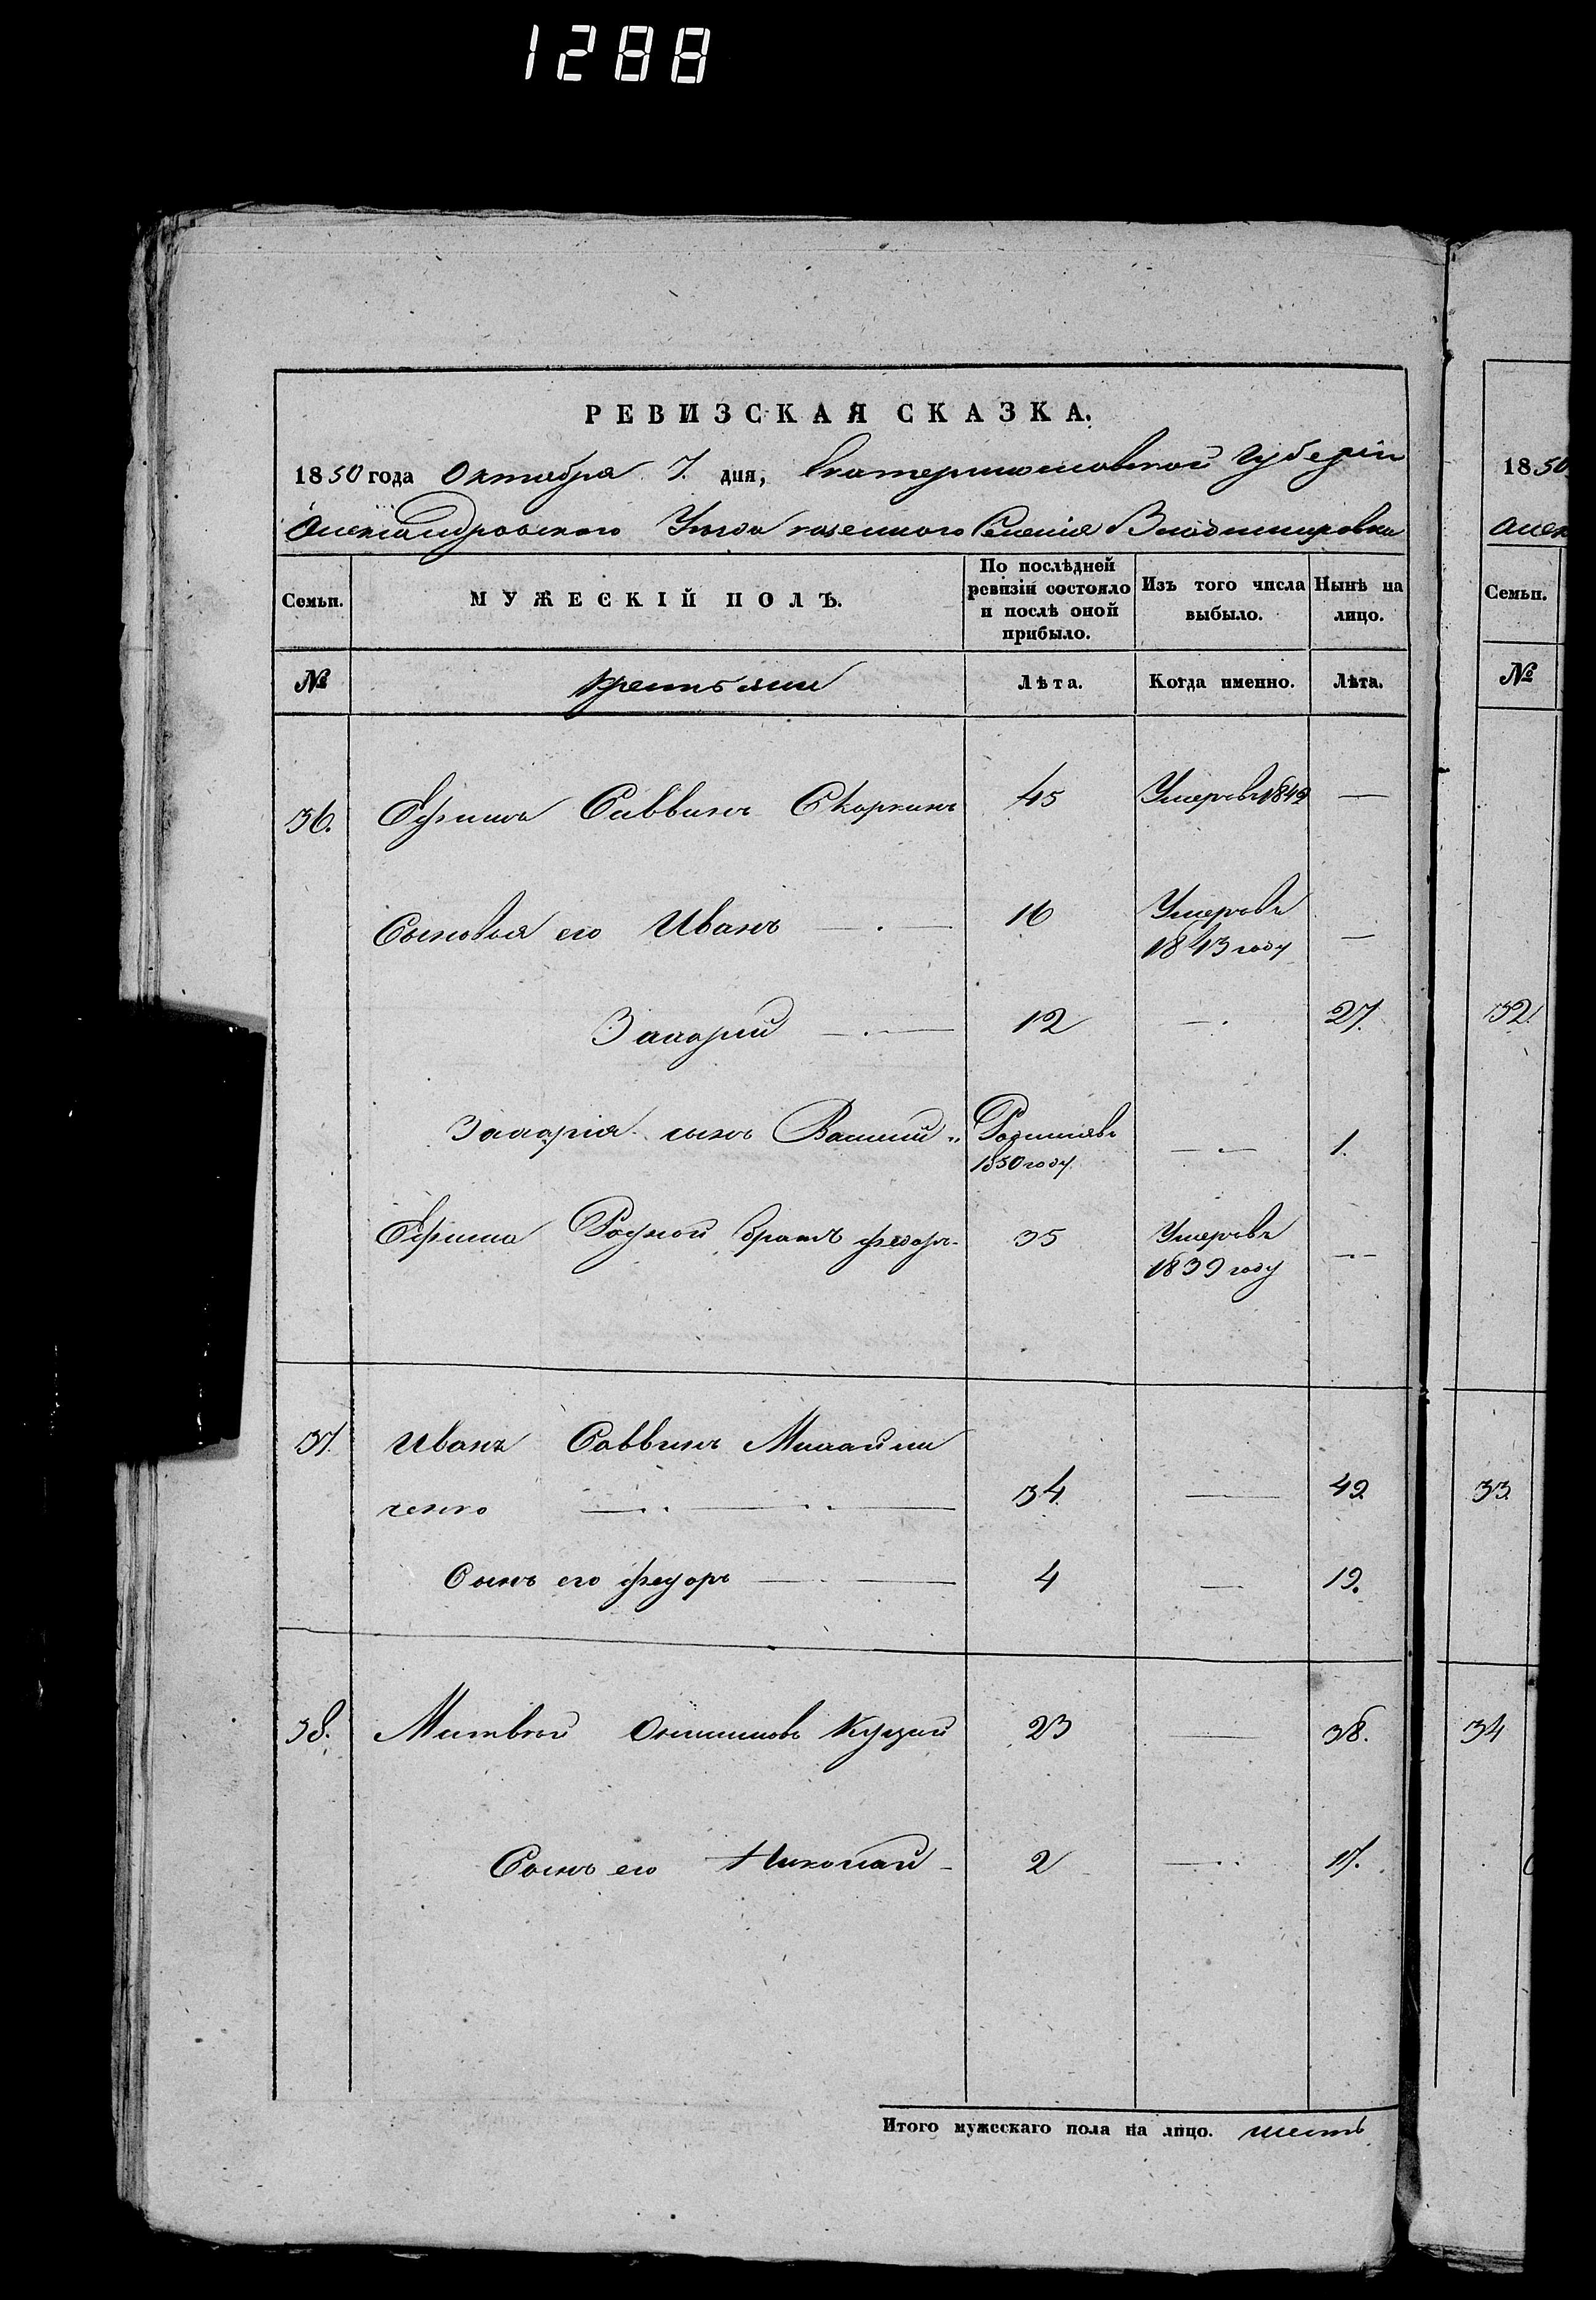 1288
РЕВИЗСКАЯ СКАЗКА.
1850 года Октября 7. дня, Екатеринославской Губерніи
Александровского Уезда казенного Селенія Владимировки
Семьи. МУЖЕСКІЙ ПОЛЪ. По послѣдней ревизіи состояло и послѣ оной прибыло. Изъ того числа выбыло. Нынѣ на лицо.
№ Крестьяни Лѣта. Когда именно. Лѣта.
36. Ефимъ Саввинъ Скоркинъ 45 Умеръ въ 1849 —
Сыновья его Иванъ — 16 Умеръ въ 1843 году —
Захарій — 12 — 27.
Захарія сынъ Василий " Родился въ 1850 году — 1.
Ефима Родной братъ федоръ 35 Умеръ въ 1839 году —
37. Иванъ Саввинъ Михайли
ченко — 34. — 49.
Сынъ его федоръ — 4 — 19.
38. Матвѣй Онисимовъ 23 — 38.
Сынъ его Николай 2 — 17.
Итого мужескаго пола на лицо. шесть
1850
Алек
Семьи.
№
32.
33.
34